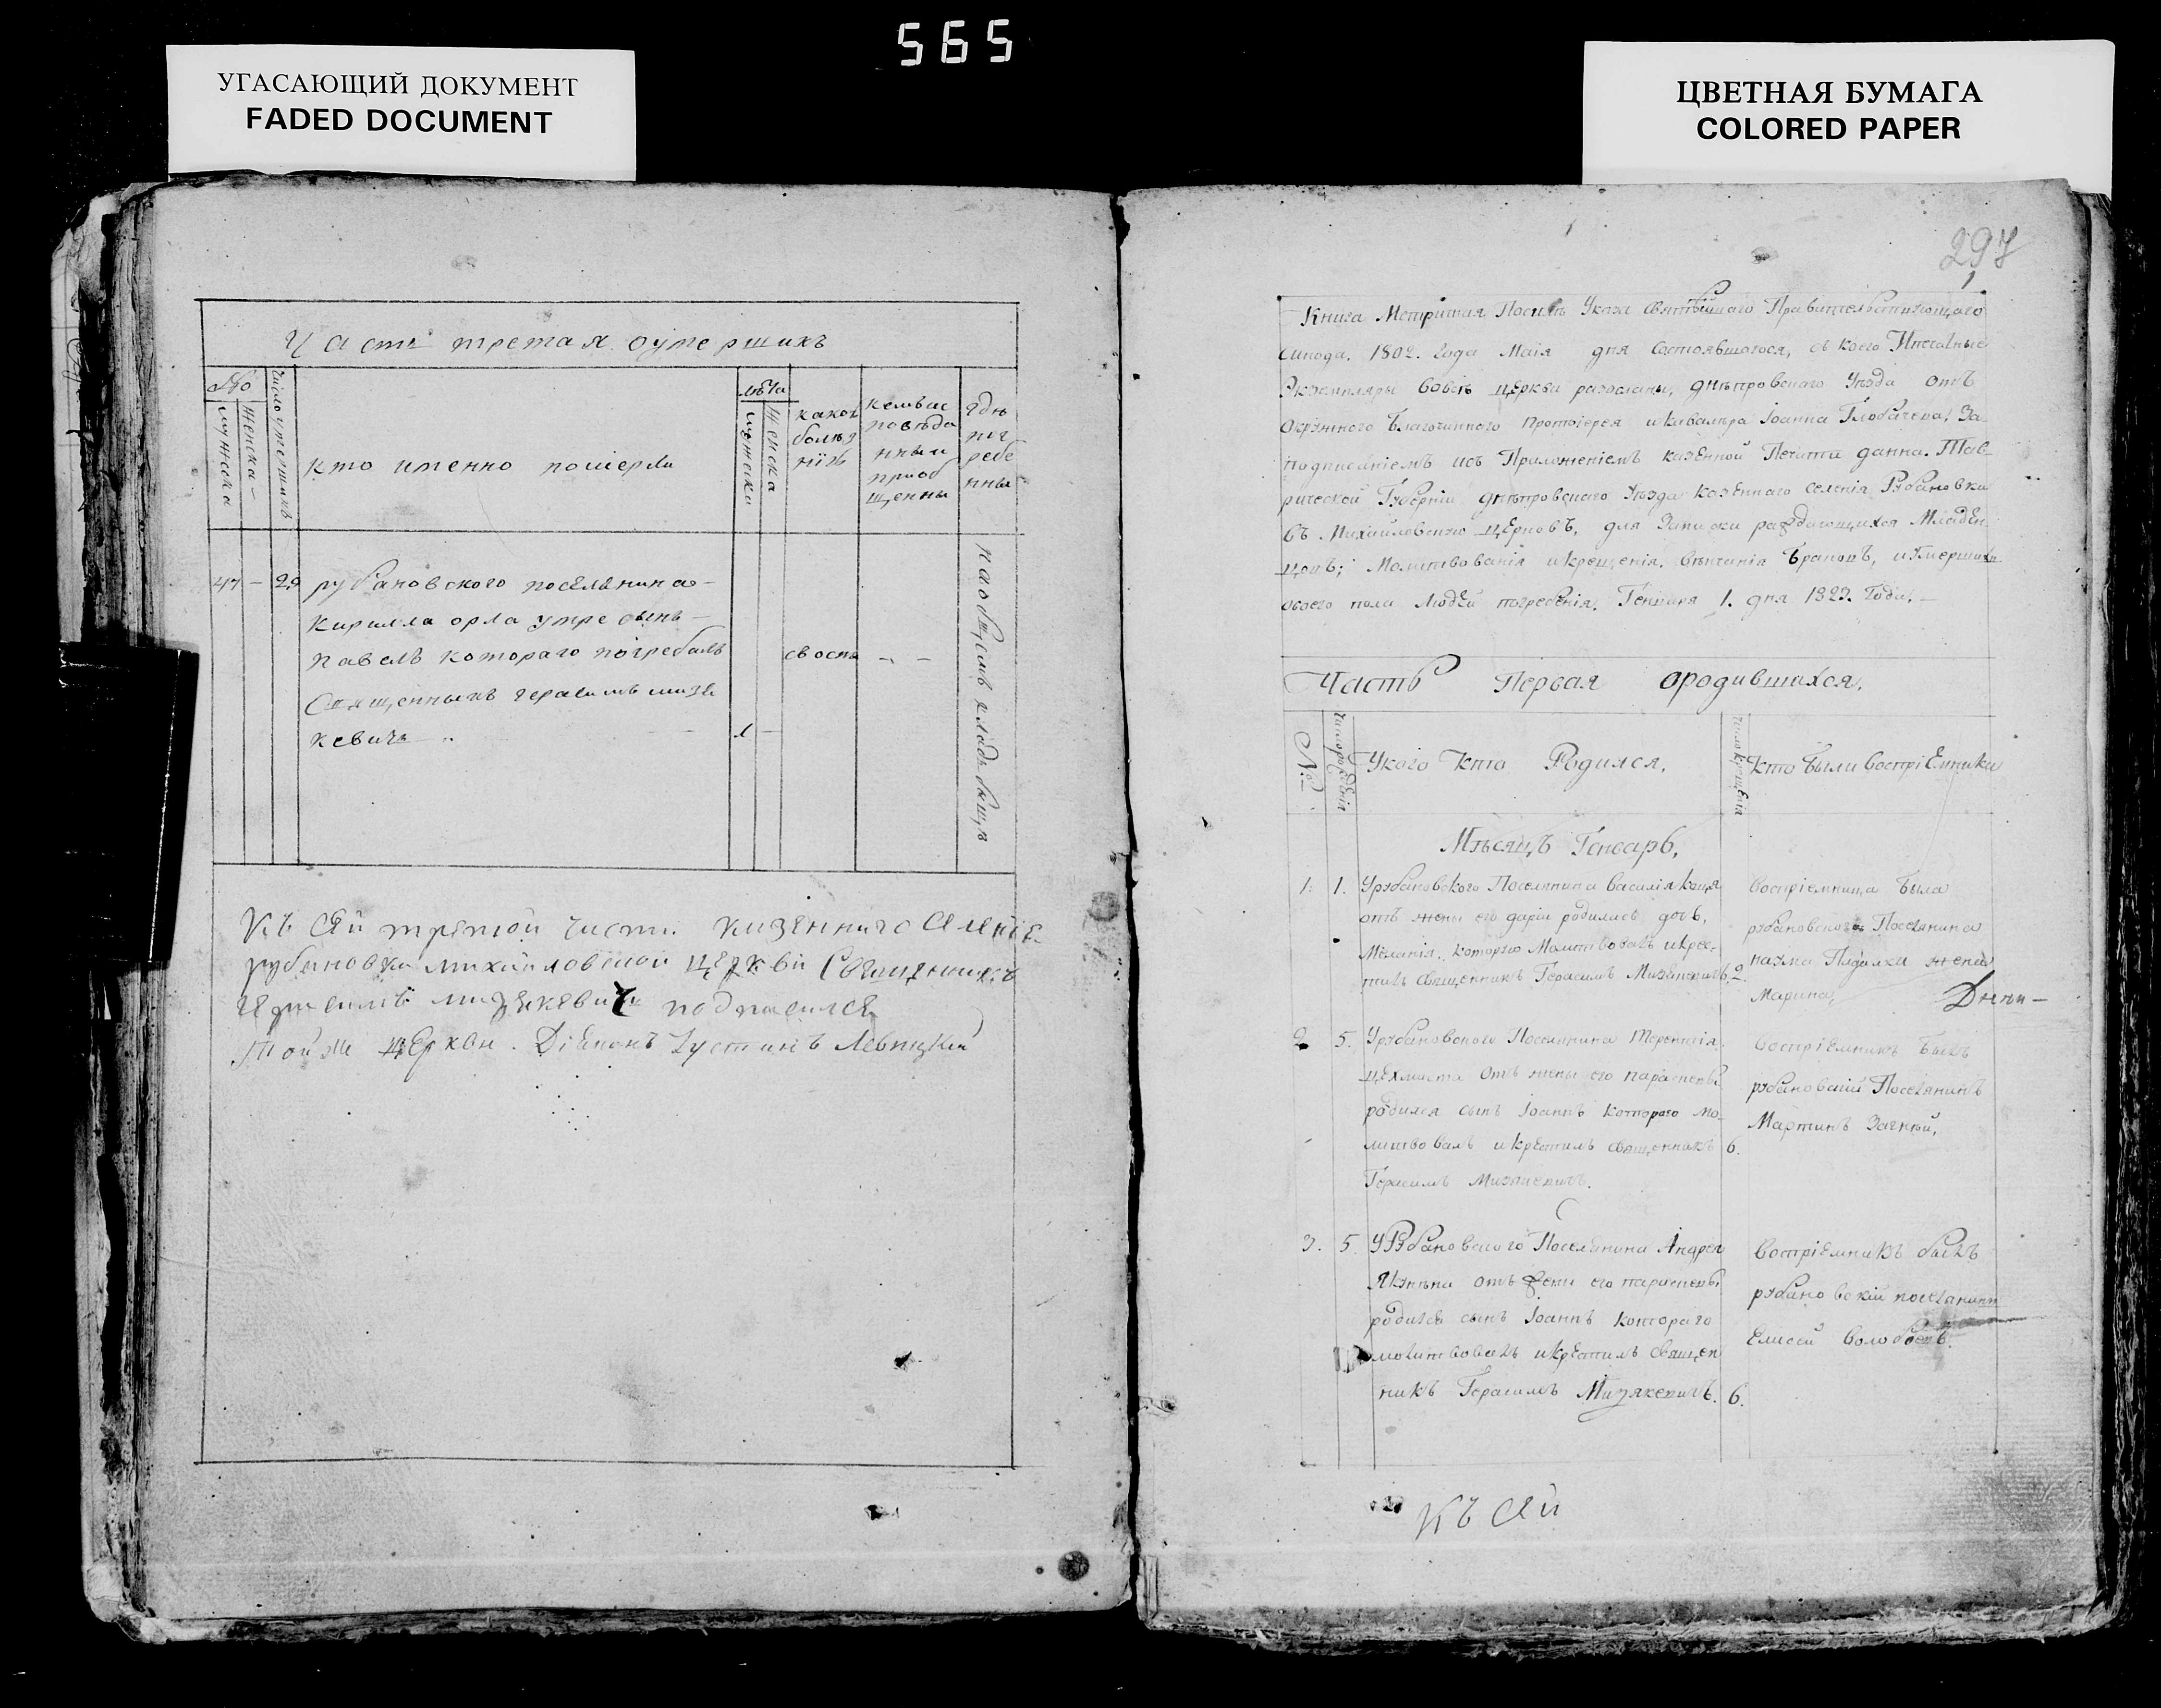 565
УГАСАЮЩИЙ ДОКУМЕНТ
FADED DOCUMENT
ЦВЕТНАЯ БУМАГА
COLORED PAPER
Часть третая оумершихъ
№
мужска
женска
число умершихъ
кто именно померли
лѣта
мужска
женска
какой
болѣз
нію
кемъ ис
повѣда
нны и
приоб
щенны
гдѣ
пог
ребе
нны
47 — 29 рубановского поселянина
кирилла орла умре сынъ
павелъ котораго погребалъ
Священникъ герасимъ мизя
кевичъ
1 —
съ оспы — —
на общемъ кладъбищѣ
Къ Сей третой части казенного Селенія
рубановки михайловской церкви Священникъ
герасимъ мизякевичъ подписался
Той же церкви Діяконъ Іустинъ Левицкій
297
1
Книга Метричная Посилѣ Указа святѣйшаго Правительствующаго
Синода. 1802. года Маія дня состоявшогося, съ коего Печатные
Экземпляры вовсѣ церкви разосланы, днѣпровского Уѣзда отъ
окружного Благочинного протоіерея и кавалера Іоанна Глобачева, За
подписаніемъ исъ Приложеніемъ казенной Печати данна. Тав
рической Губерніи днѣпровского Уѣзда казенного селенія Рубановки
въ Михайловскую церковь, для Записки раждающихся Младен
цовъ; Молитвованія икрещенія, вѣнчанія Браковъ, иумершихъ
обоего пола людей погребенія, Генваря 1. дня 1822. Года. —
Часть Первая ородившихся.
№
число рожденія
Укого кто Родился,
число крещенія
кто были восприемники
Мѣсяцъ Генварь,
1. 1. Урубановского Поселянина василія коця
отъ жены его даріи родилась дочь,
Меланія, которую Молитвовалъ икрес
тилъ священникъ Герасимъ Мизякевичъ 2
Воспріемница была
рубановского Поселянина
наума Пидалки жена
Марина,
Днѣп—
2 5. Урубановского Поселянина Терентія
цехмиста отъ жены его параскевы
родился сынъ Іоаннъ котораго мо
литвовалъ икрестилъ священникъ 6.
Герасимъ Мизякевичъ.
Воспріемникъ былъ
рубановскій Поселянинъ
Мартинъ Заечный,
3. 5. У Рубановского Поселянина Андрея
отъ жены его параскевы
родился сынъ Іоаннъ котораго
молитвовалъ икрестилъ священ
никъ Герасимъ Мизякевичъ. 6.
Воспріемникъ былъ
рубановскій поселянинъ
Елисей
Къ Сей